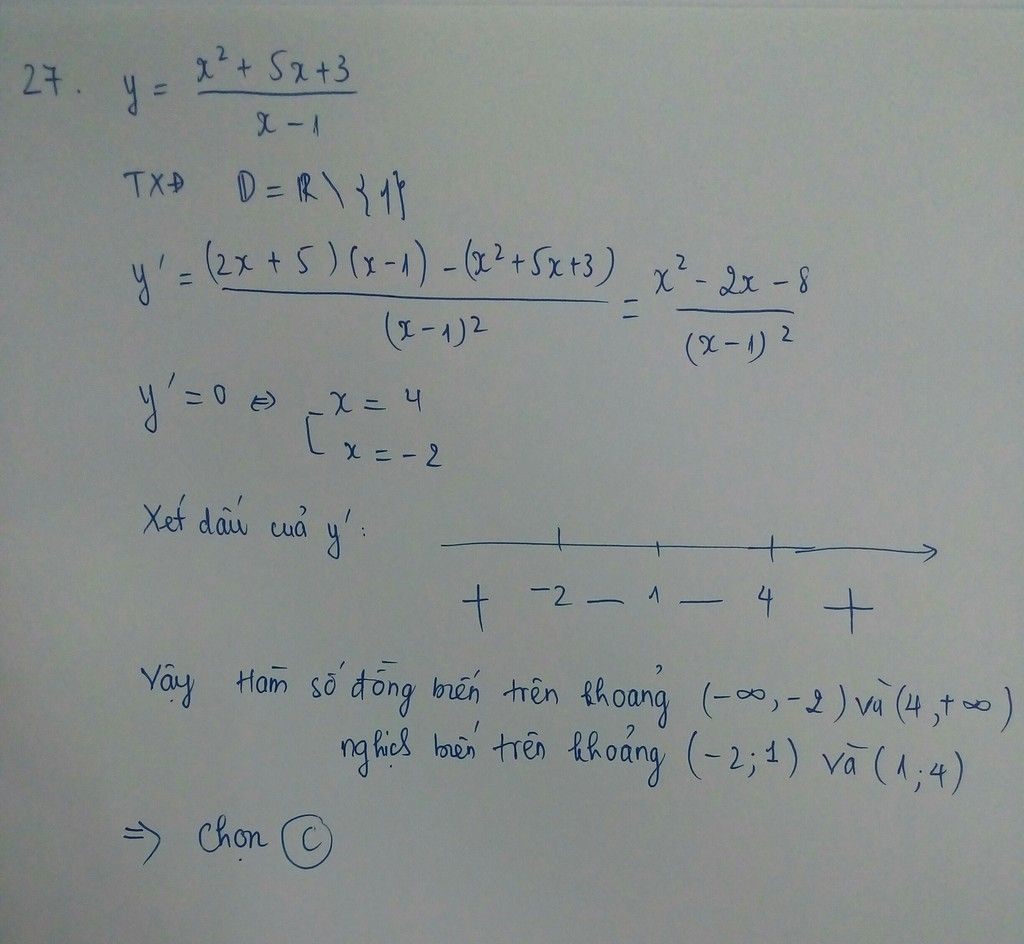 27. y = (x² + 5x + 3)/(x - 1)
TXĐ D = ℝ \ {1}
y' = ((2x + 5)(x - 1) - (x² + 5x + 3))/(x - 1)² = (x² - 2x - 8)/(x - 1)²
y' = 0 ⇔ [ x = 4
x = -2
Xét dấu của y':
+ -2 — 1 — 4 +
Vậy Hàm số đồng biến trên khoảng (-∞, -2) và (4, +∞)
nghịch biến trên khoảng (-2; 1) và (1; 4)
=> Chọn C